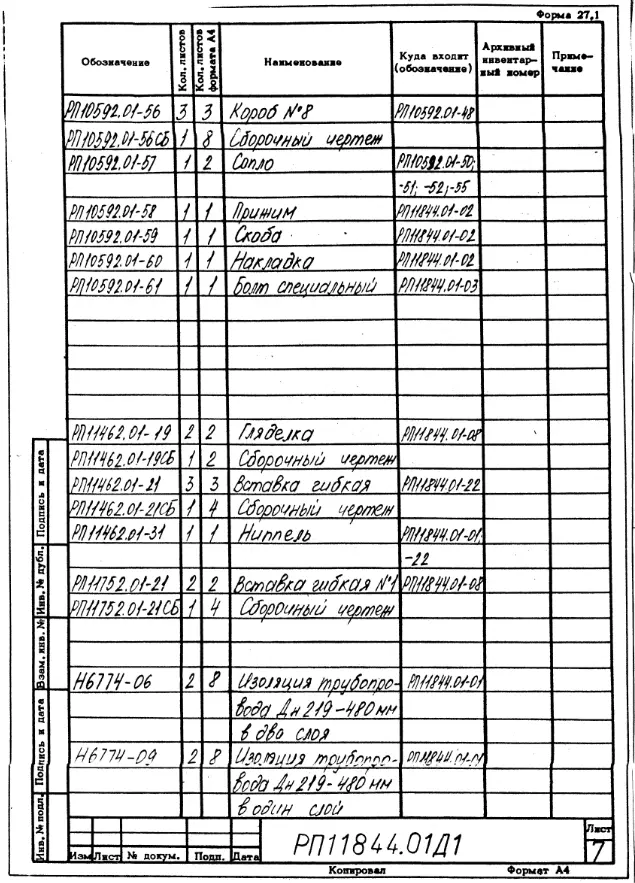 Форма 27,1
Обозначение Кол. листов Кол. листов формата А4 Наименование Куда входит (обозначение) Архивный инвентарный номер Примечание
РП10592.01-56 3 3 Короб №8 РП10592.01-48
РП10592.01-56СБ 1 8 Сборочный чертеж
РП10592.01-57 1 2 Сопло РП10592.01-50;
-51; -52;-55
РП10592.01-58 1 1 Прижим РП11844.01-02
РП10592.01-59 1 1 Скоба РП11844.01-02
РП10592.01-60 1 1 Накладка РП11844.01-02
РП10592.01-61 1 1 Болт специальный РП11844.01-03
РП11462.01-19 2 2 Гляделка РП11844.01-08
РП11462.01-19СБ 1 2 Сборочный чертеж
РП11462.01-21 3 3 Вставка гибкая РП11844.01-22
РП11462.01-21СБ 1 4 Сборочный чертеж
РП11462.01-31 1 1 Ниппель РП11844.01-01,
-22
РП11752.01-21 2 2 Вставка гибкая №1 РП11844.01-08
РП11752.01-21СБ 1 4 Сборочный чертеж
Н6774-06 2 8 Изоляция трубопро- РП11844.01-01
вода Дн 219-480 мм
в два слоя
Н6774-09 2 8 Изоляция трубопро- РП11844.01-01
вода Дн 219-480 мм
в один слой
Инв. № подл. Подпись и дата Взам. инв. № Инв. № дубл. Подпись и дата
Изм Лист № докум. Подп. Дата
РП11844.01Д1
Лист
7
Копировал Формат А4